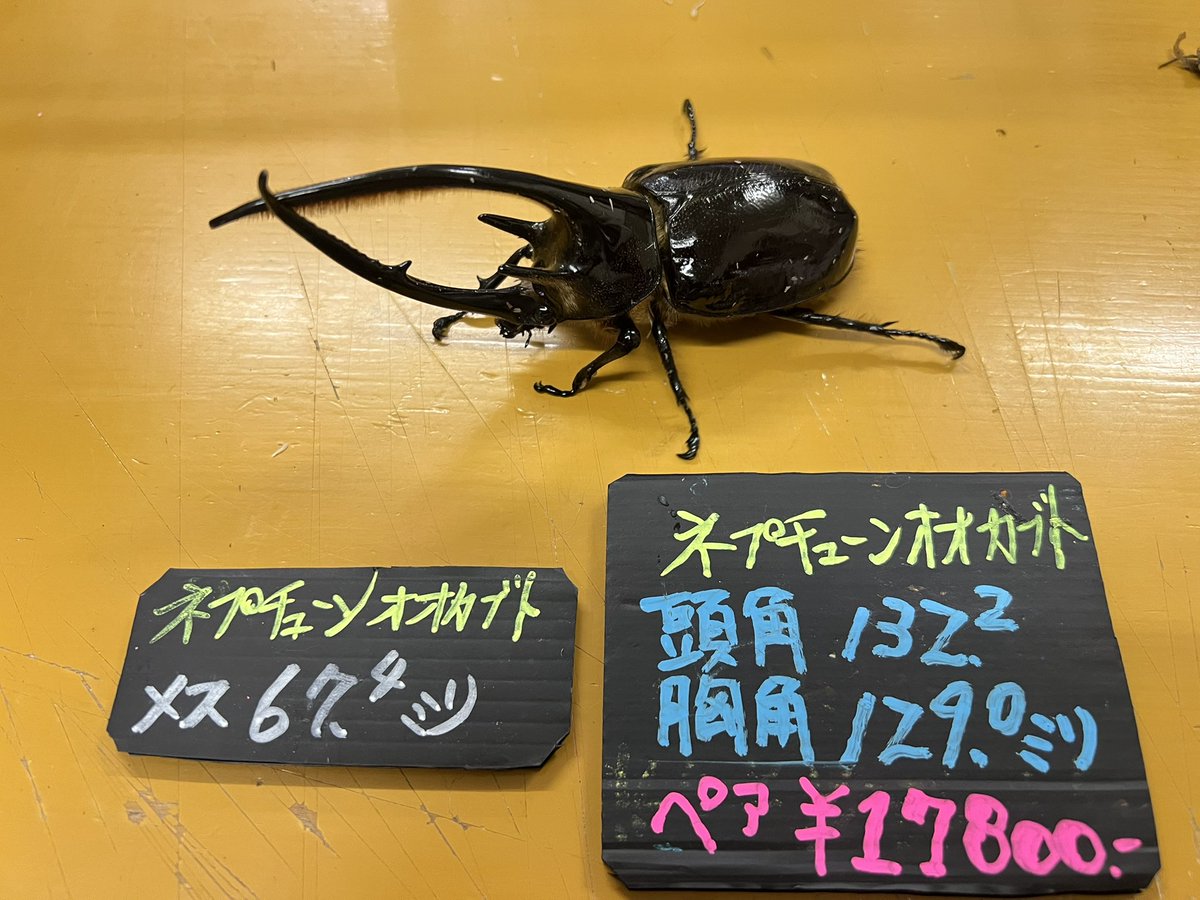 ネプチューンオオカブト
メス 67.4ミリ
ネプチューンオオカブト
頭角 132.2
胸角 129.0ミリ
ペア ¥17800.-